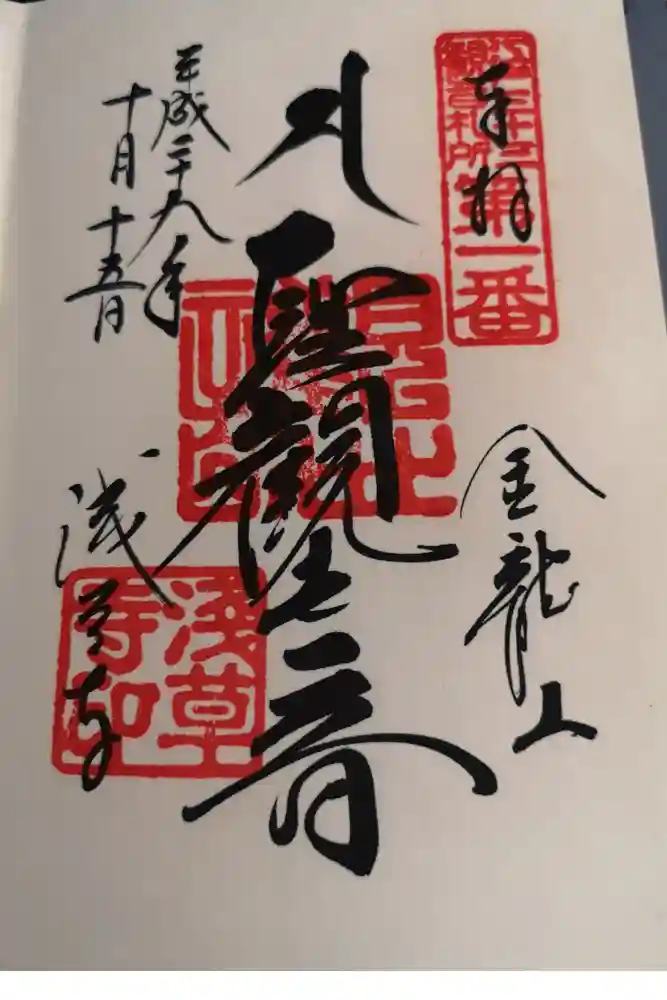 奉拝
江戸三十三
観音札所
第一番
金龍山
聖観世音
平成二十九年
十月十五日
浅草寺
浅草
寺印